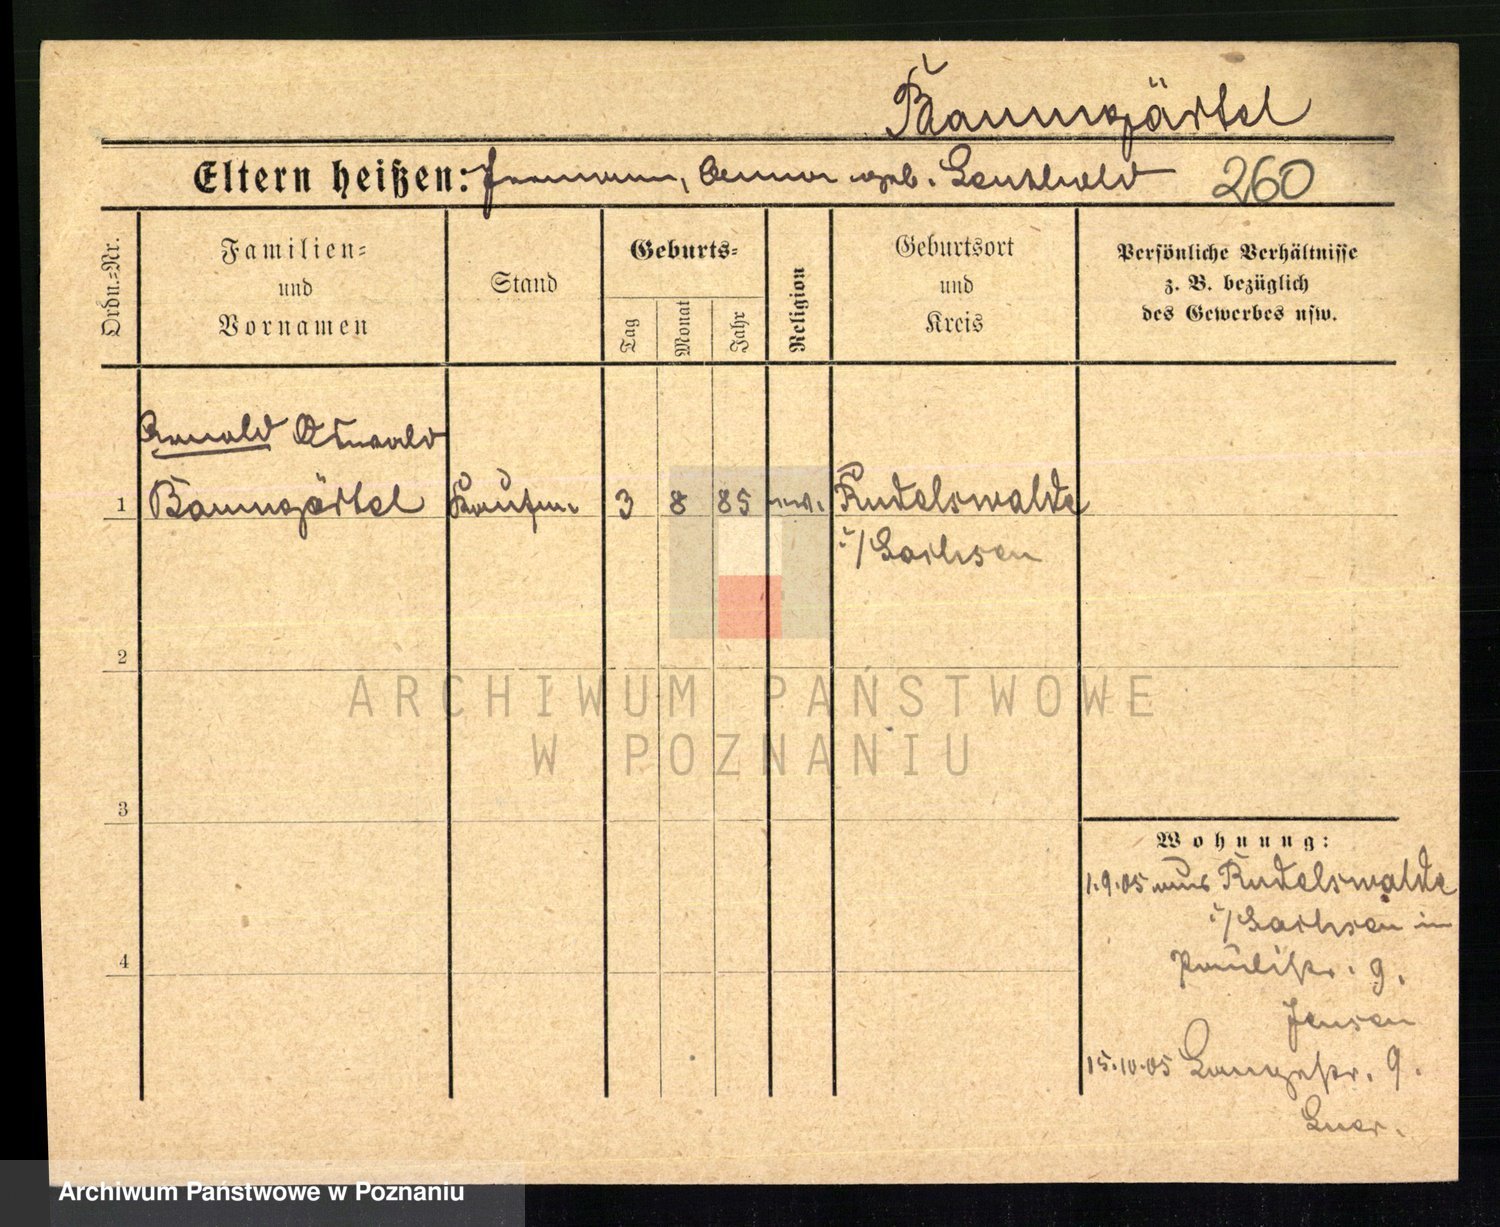 Baumgärtel
Eltern heißen: Hermann, Anna geb. Leuthold 260
Ordn.=Nr.
Familien=
und
Vornamen
Stand
Geburts=
Tag
Monat
Jahr
Religion
Geburtsort
und
Kreis
Persönliche Verhältnisse
z. B. bezüglich
des Gewerbes usw.
Arnold Oswald
1 Baumgärtel Kaufm. 3 8 85 ev. Rudelswalde
i/Sachsen
2
3
4
Wohnung:
1.9.05 aus Rudelswalde
i/Sachsen in
Paulistr. 9.
Jensen
15.10.05 Langestr. 9.
ARCHIWUM PAŃSTWOWE
W POZNANIU
Archiwum Państwowe w Poznaniu